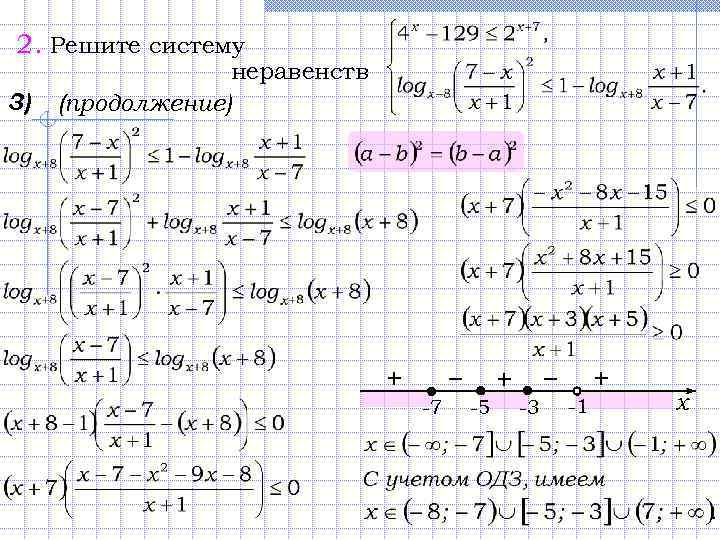 2. Решите систему неравенств
{ 4^x − 129 ≤ 2^(x+7),
log_(x+8) ((7 − x)/(x + 1))^2 ≤ 1 − log_(x+8) (x + 1)/(x − 7).
3) (продолжение)
log_(x+8) ((7 − x)/(x + 1))^2 ≤ 1 − log_(x+8) (x + 1)/(x − 7)
log_(x+8) ((x − 7)/(x + 1))^2 + log_(x+8) (x + 1)/(x − 7) ≤ log_(x+8) (x + 8)
log_(x+8) (((x − 7)/(x + 1))^2 · (x + 1)/(x − 7)) ≤ log_(x+8) (x + 8)
log_(x+8) ((x − 7)/(x + 1)) ≤ log_(x+8) (x + 8)
(x + 8 − 1)((x − 7)/(x + 1) − (x + 8)) ≤ 0
(x + 7)((x − 7 − x^2 − 9x − 8)/(x + 1)) ≤ 0
(a − b)^2 = (b − a)^2
(x + 7)((− x^2 − 8x − 15)/(x + 1)) ≤ 0
(x + 7)((x^2 + 8x + 15)/(x + 1)) ≥ 0
(x + 7)(x + 3)(x + 5)/(x + 1) ≥ 0
+ − + − +
-7 -5 -3 -1 x
x ∈ (− ∞; − 7] ∪ [− 5; − 3] ∪ (− 1; + ∞)
С учетом ОДЗ, имеем
x ∈ (− 8; − 7) ∪ [− 5; − 3] ∪ (7; + ∞).